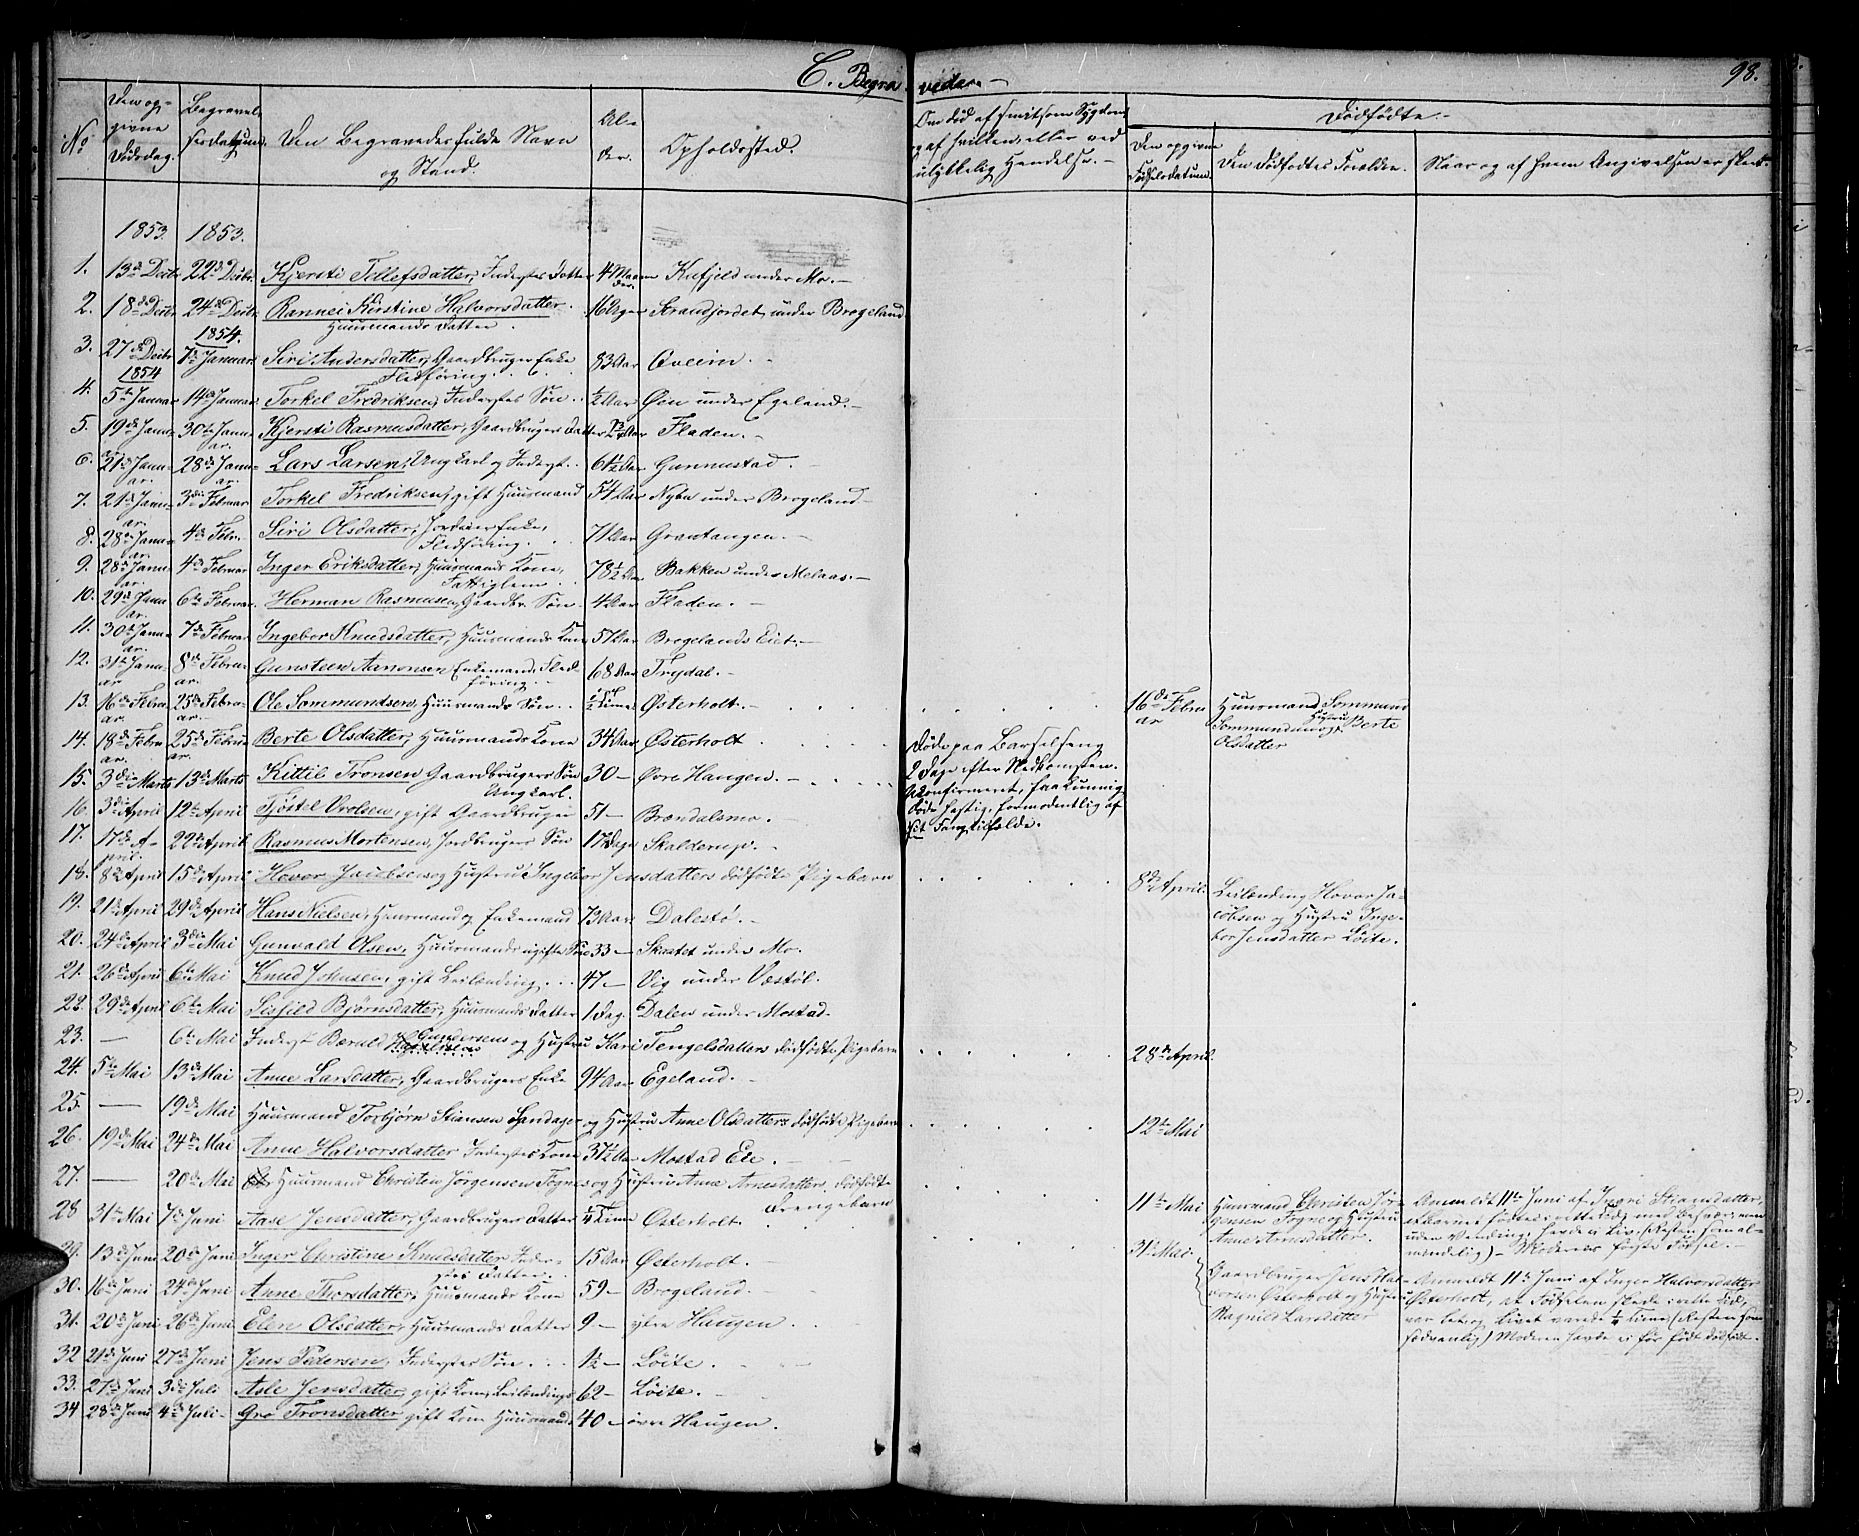 C. Begravede.
98.
No
Den opgivne Dødsdag.
Begravelsesdatum.
Den Begravedes fulde Navn og Stand.
Alder.
Opholdssted.
Om død af smitsom Sygdom og af hvilken, eller ved ulykkelig Hendelse.
Dødfødte.
Den opgivne Fødselsdatum.
Den Dødfødtes Forældre.
Naar og af hvem Angivelsen er skeet.
1853. 1853.
1. 13de Decbr 22de Decbr Kjersti Tellefsdatter, Inderstes Datter 4 Maaneder. Kufjeld under Mo.
2. 18de Decbr 24de Decbr Rannei Kirstine Halvorsdatter Huusmands Datter 16 Uger Strandjordet under Brogeland
1854.
3. 27de Decbr 7de Januar Siri Andersdatter, Gaardbruger Enke Fledføring. 83 Aar Oveim.
1854
4. 5te Januar 14de Januar Torkel Fredriksen, Inderstes Søn ½ Aar Øen under Egeland.
5. 19de Januar 30te Januar Kjersti Rasmusdatter, Gaardbrugers Datter Aar Fladen.
6. 21de Januar 28de Januar Lars Larsen, Ungkarl og Inderst 61½ Aar Gunnustad.
7. 21de Januar 3die Februar Torkel Fredriksen, gift Huusmand 54 Aar Nybu under Brogeland
8. 28de Januar 4de Febr. Siri Olsdatter, Jordeier Enke, Fledføring. 71 Aar Grantangen.
9. 28de Januar 4de Februar Inger Eriksdatter, Huusmands Kone, Fattiglem 78½ Aar Bakken under Melaas.
10. 29de Januar 6te Februar. Herman Rasmusen, Gaardbr. Søn. 4 Aar Fladen.
11. 30te Januar 7de Februar Ingebor Knudsdatter, Huusmands Kone 57 Aar Brogelands Eiet.
12. 31te Januar 8de Februar. Gunsteen Aanonsen Enkemand, Fledføring. 68 Aar Trydal.
13. 16de Februar. 25de Februar. Ole Sommundsen, Huusmands Søn ½ Time Østerholt. 16de Februar Huusmand Sommund Sommundsen og Hustru Berte Olsdatter
14. 18de Februar. 25de Februar. Berte Olsdatter, Huusmands Kone 34 Aar Østerholt Døde paa Barselseng 2 Dage efter Nedkomsten.
15. 3die Marts 13de Marts Kittil Tronsen Gaardbrugers Søn Ungkarl. 30 – Øvre Haugen. Ukonfirmeret,
16. 3die April 12te April Tjøstel Vrolsen, gift Gaardbruger 51 – Brøndalsmo. døde hastig, formodentlig af
17. 17de April. 22de April Rasmus Mortensen, Jordbrugers Søn 17 Dage Skalderup.
18. 8de April 15de April Hovor Jacobsen og Hustru Ingebor Jensdatters dødfødte Pigebarn 8de April. Leilænding Hovor Jacobsen og Hustru Ingebor Jensdatter Løite.
19. 21de April 29de April Hans Nielsen, Huusmand og Enkemand 73 Aar Dalestø.
20. 24de April 3die Mai Gunvald Olsen, Huusmands ugifte Søn 33 – Skaatet under Mo.
21. 26de April 6te Mai Knud Johnsen, gift Leilænding 47 – Vig under Væstøl.
22. 29de April 6te Mai Sisfild Bjørnsdatter, Huusmands Datter 1 Dag. Dalen under Mostad.
23. — 6te Mai Inderst Berulf Gundersens og Hustru Kari Tengelsdatters dødfødte Pigebarn 28de April.
24. 5te Mai 13de Mai Anne Larsdatter, Gaardbrugers Enke 94 Aar Egeland.
25. — 19de Mai Huusmand Torbjørn Stiansen Sandager og Hustru Anne Olsdatters dødfødte Pigebarn 12te Mai
26. 19de Mai 24de Mai Anne Halvorsdatter Inderstes Kone 37½ Aar Mostad Eie.
27. — 20de Mai Huusmand Christen Jørgensen Fogne og Hustru Anne Arnesdatters dødfødte Drengebarn 11te Mai Huusmand Christen Jørgensen Fogne og Hustru Anne Arnesdatter. Anmeldt 11te Juni af Ingri Stiansdatter, at Barnet fødtes i rette Tid, med Besvær, men uden Vending, havde ei Liv. (Resten som almindelig) – Moderens første Fødsel.
28 31te Mai 7de Juni Aase Jensdatter, Gaardbrugers Datter ¼ Time Østerholt. 31te Mai. Gaardbruger Jens Halvorsen Østerholt og Hustru Magnild Larsdatter Anmeldt 11te Juni af Inger Halvorsdatter Østerholt, at Fødselen skede i rette Tid, var let og Livet varede ¼ Time (Resten som sædvanlig) Moderen havde ei før født dødfødt.
29. 13de Juni 20de Juni Inger Christine Knudsdatter Inderstes Datter. 15 Aar Østerholt.
30. 16de Juni 24de Juni Anne Thorsdatter, Huusmands Kone 59 – Brogeland.
31. 20de Juni 26de Juni Elen Olsdatter, Huusmands Datter 9 – ytre Haugen.
32 21de Juni 27de Juni Jens Pedersen, Inderstes Søn 1½ – Løite.
33. 27de Juni 3die Juli Asle Jensdatter, gift Kone, Leilendings 62 – Løite.
34 28de Juni 4de Juli Gro Tronsdatter gift Kone Huusmands 40 – øvre Haugen.